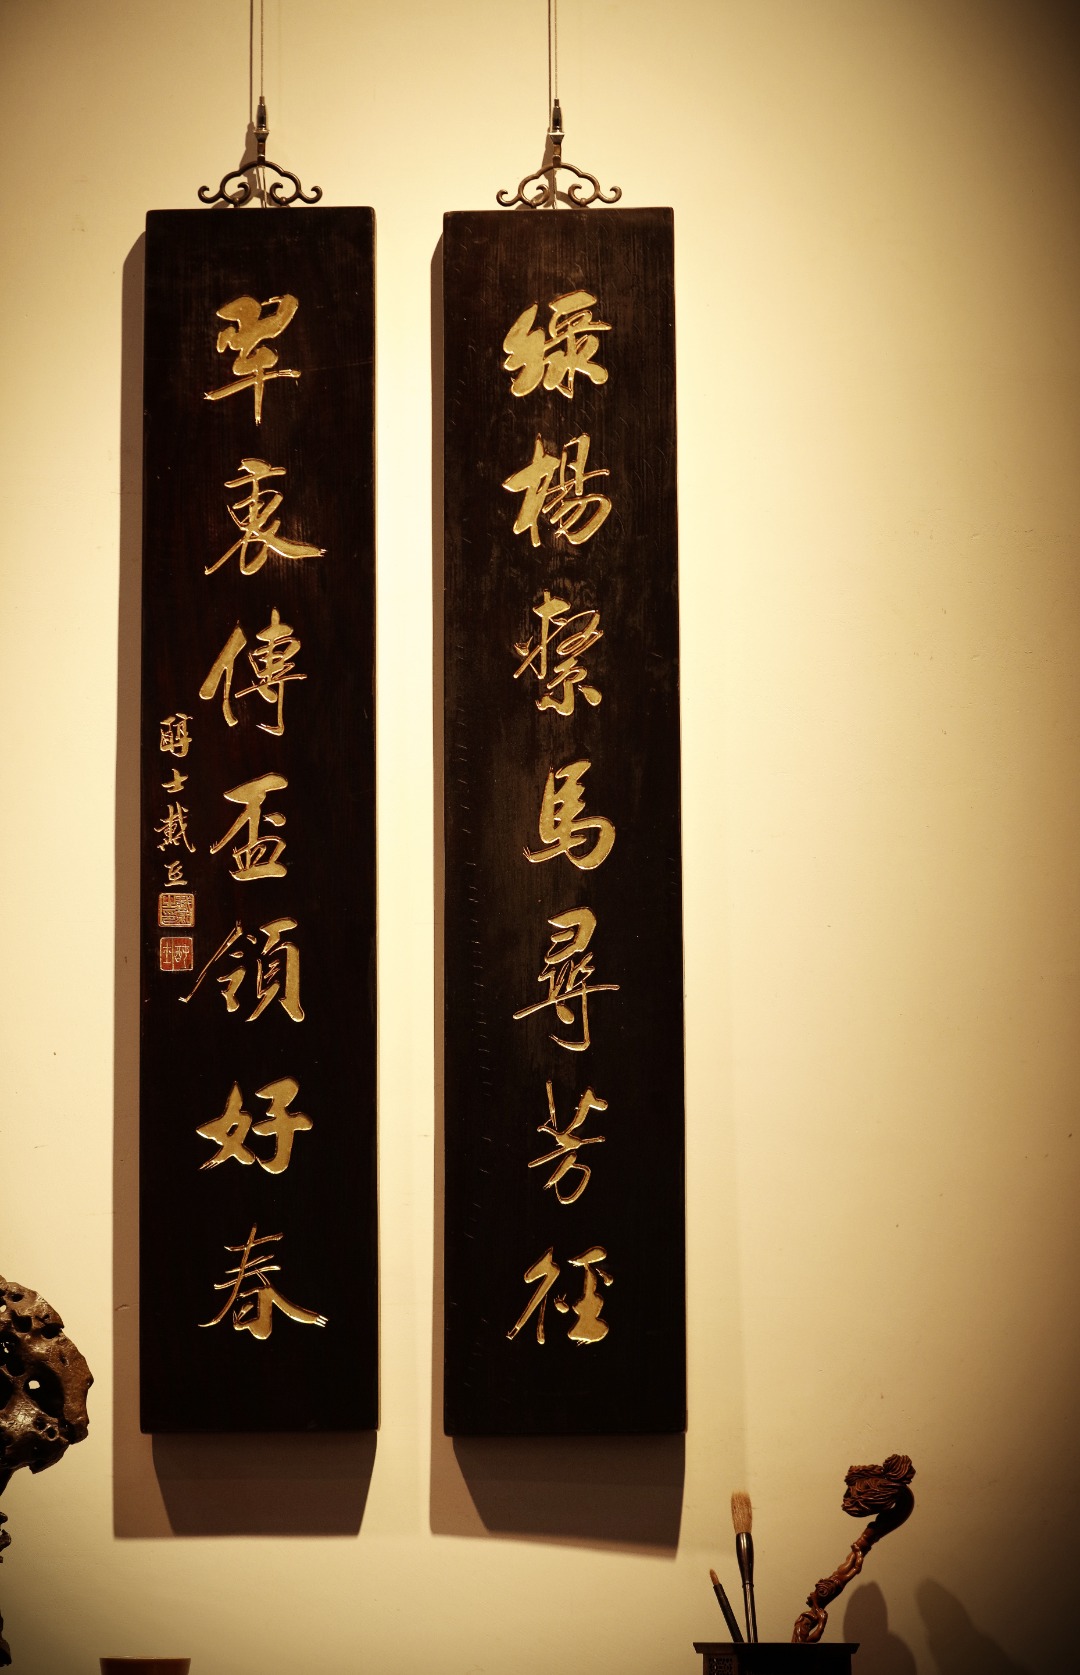 綠楊繫馬尋芳徑
翠裹傳盃領好春
醇士戴熙